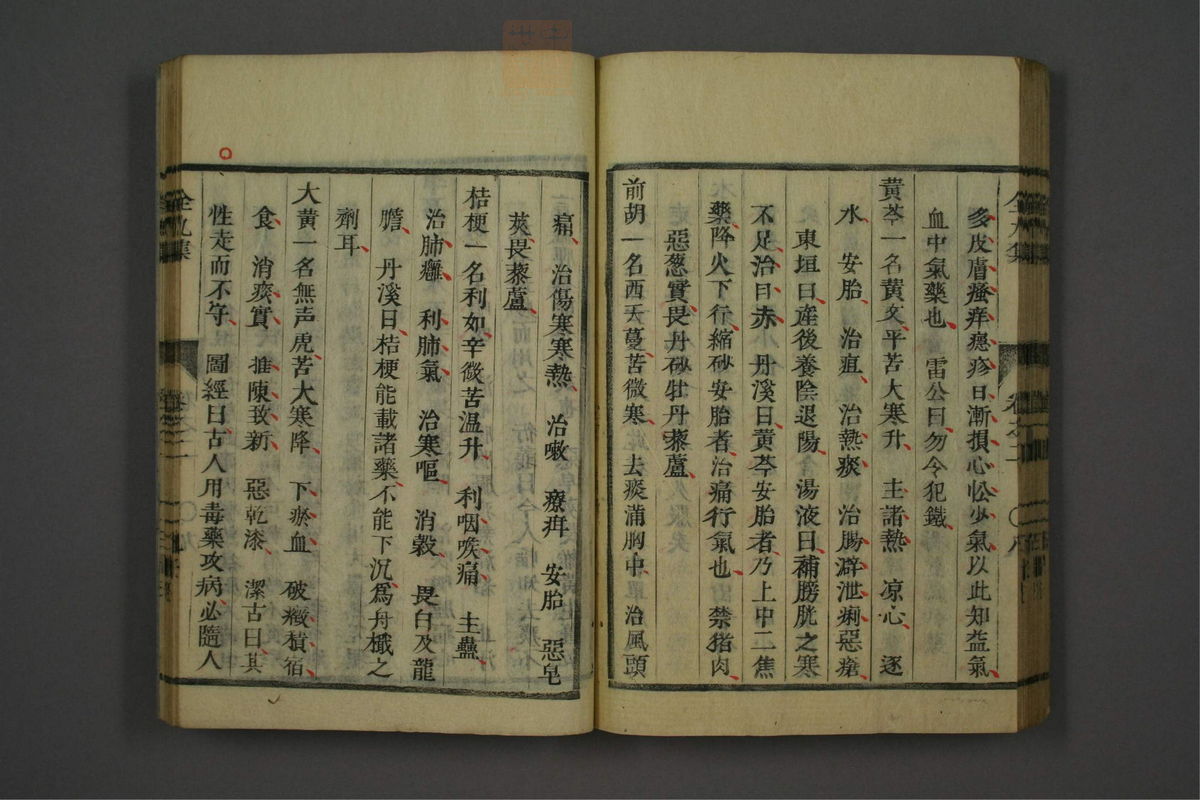 多皮膚瘙痒㾪疹曰漸損心忪少氣以此知益氣
血中氣藥也 雷公曰勿令犯鐵
黃芩一名黃文平苦大寒升 主諸熱 凉心 逐
水 安胎 治疽 治熱痰 治腸澼泄痢惡瘡
東垣曰産後養陰退陽 湯液曰補膀胱之寒
不足治曰赤 丹溪曰黃芩安胎者乃上中二焦
藥降火下行縮砂安胎者治痛行氣也 禁猪肉
惡葱實畏丹砂牡丹藜蘆
前胡一名西天蔓苦微寒 去痰滿胸中 治風頭
痛 治傷寒寒熱 治嗽 療疰 安胎 惡皂
莢畏藜蘆
桔梗一名利如辛微苦温升 利咽喉痛 主蠱
治肺癰 利肺氣 治寒嘔 消穀 畏白及龍
膽 丹溪曰桔梗能載諸藥不能下沉爲舟檝之
劑耳
大黃一名無声虎苦大寒降 下瘀血 破癥積宿
食 消痰實 推陳致新 惡乾漆 潔古曰其
性走而不守 圖經曰古人用毒藥攻病必隨人
全九集